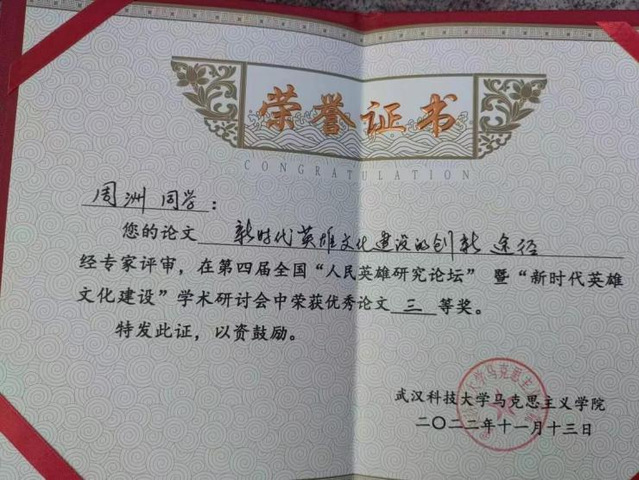 荣誉证书
CONGRATULATION
周洲 同学：
您的论文 新时代英雄文化建设的创新途径
经专家评审，在第四届全国“人民英雄研究论坛”暨“新时代英雄
文化建设”学术研讨会中荣获优秀论文 三 等奖。
特发此证，以资鼓励。
武汉科技大学马克思主义学院
二〇二二年十一月十三日